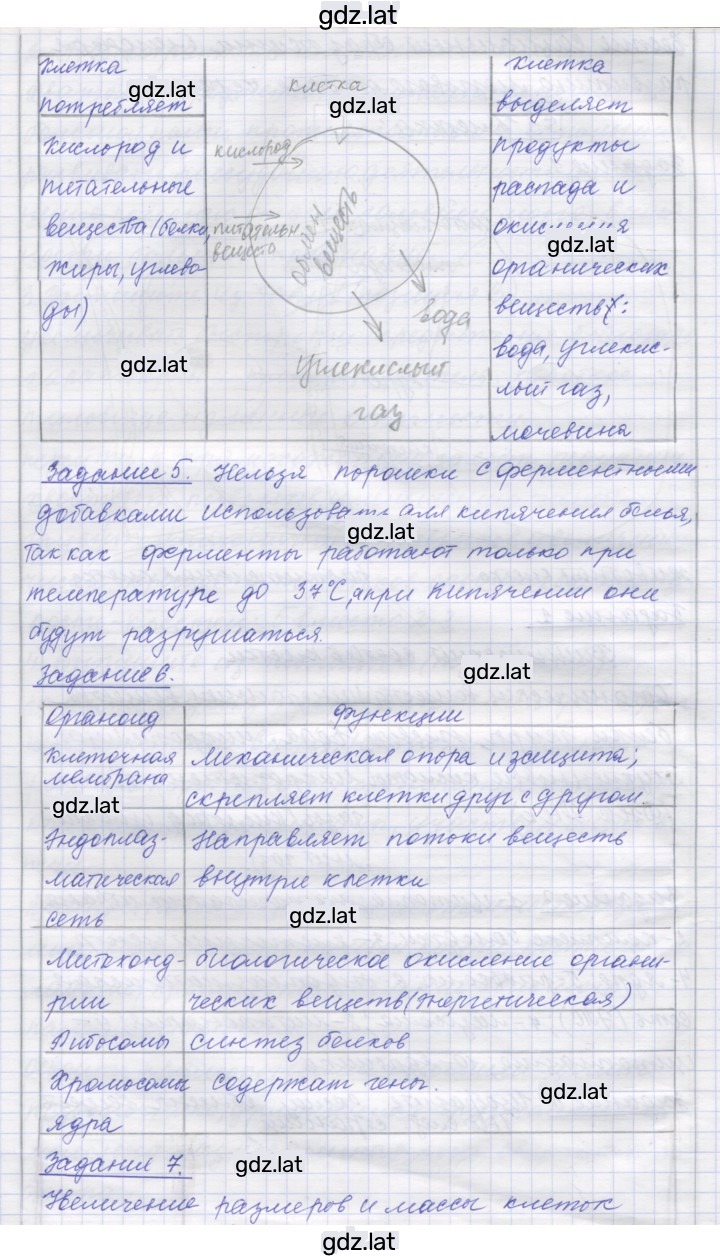 gdz.lat
Клетка
потребляет
gdz.lat
клетка
gdz.lat
Клетка
выделяет
Кислород и
питательные
вещества (белки,
жиры, углево-
ды)
кислород
питательн.
веществ
обмен
веществ
вода
Углекислый
газ
продукты
распада и
gdz.lat
органических
веществ:
вода, углекис-
лый газ,
мочевина
gdz.lat
Задание 5. Нельзя порошки с ферментными
добавками использовать для кипячения белья,
gdz.lat
так как ферменты работают только при
температуре до 37°С, а при кипячении они
будут разрушаться.
Задание 6.
gdz.lat
Органоид функции
Клеточная мембрана
Механическая опора и защита;
скрепляет клетки друг с другом.
gdz.lat
Эндоплаз-
матическая
сеть
Направляет потоки веществ
внутри клетки
gdz.lat
Митохонд-
рии
биологическое окисление органи-
ческих веществ (энергетическая)
Рибосомы синтез белков
Хромосомы
ядра
содержат гены.
gdz.lat
Задания 7.
gdz.lat
Увеличение размеров и массы клеток
gdz.lat